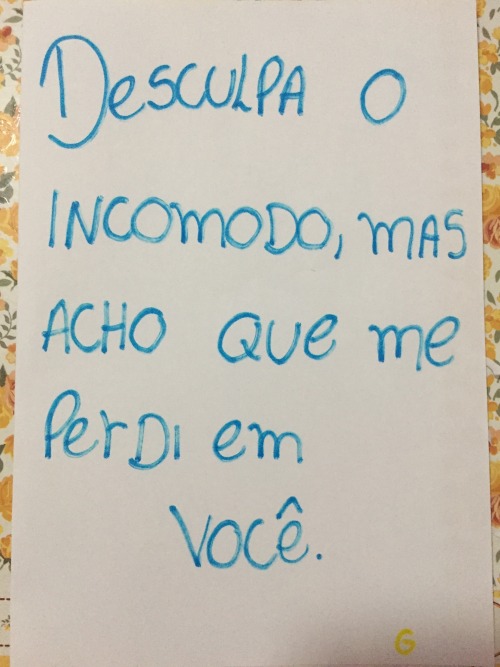 Desculpa o
incomodo, mas
acho que me
perdi em
você.
G